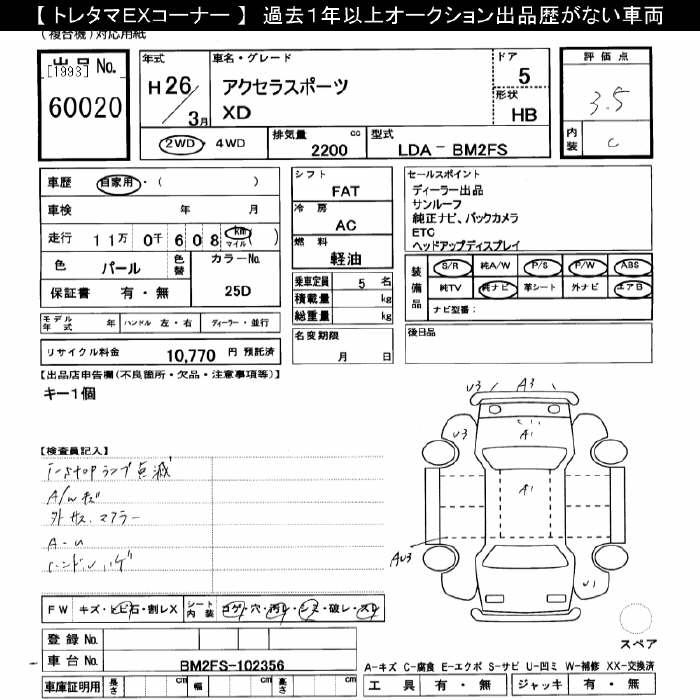 【 トレタマEXコーナー 】 過去1年以上オークション出品歴がない車両
(複合機)対応用紙
出品 No.
[1993]
60020
年式
H 26/3月
車名・グレード
アクセラスポーツ
XD
ドア
5
形状
HB
評価点
3.5
内装
C
2WD・4WD
排気量 cc
2200
型式
LDA－BM2FS
車歴 自家用・( )
車検 年 月
走行 11万 0千 608 km マイル ( )
色 パール 色替 カラーNo. 25D
保証書 有・無
シフト
FAT
冷房
AC
燃料
軽油
乗車定員 5 名
積載量 kg
総重量 kg
セールスポイント
ディーラー出品
サンルーフ
純正ナビ、バックカメラ
ETC
ヘッドアップディスプレイ
装備品
S/R 純A/W P/S P/W ABS
純TV 純ナビ 革シート 外ナビ エアB
ナビ型番:
モデル年式 年 ハンドル 左・右 ディーラー・並行
リサイクル料金 10,770 円 預託済
名変期限
月 日
後日品
【出品店申告欄(不良箇所・欠品・注意事項等)】
キー1個
【検査員記入】
i-stopランプ点滅
A/Wキズ
外サス.マフラー
A-U
ハンドルハゲ
U3 A3
U3
A1
A1
AU3
U1
スペア
FW キズ・ヒビ石・割レX シート内装 コゲ・穴・汚レ・シミ・破レ・スレ
登録No.
車台No. BM2FS-102356
車庫証明用 長さ cm 幅 cm 高さ cm
A-キズ C-腐食 E-エクボ S-サビ U-凹ミ W-補修 XX-交換済
工具 有・無 ジャッキ 有・無